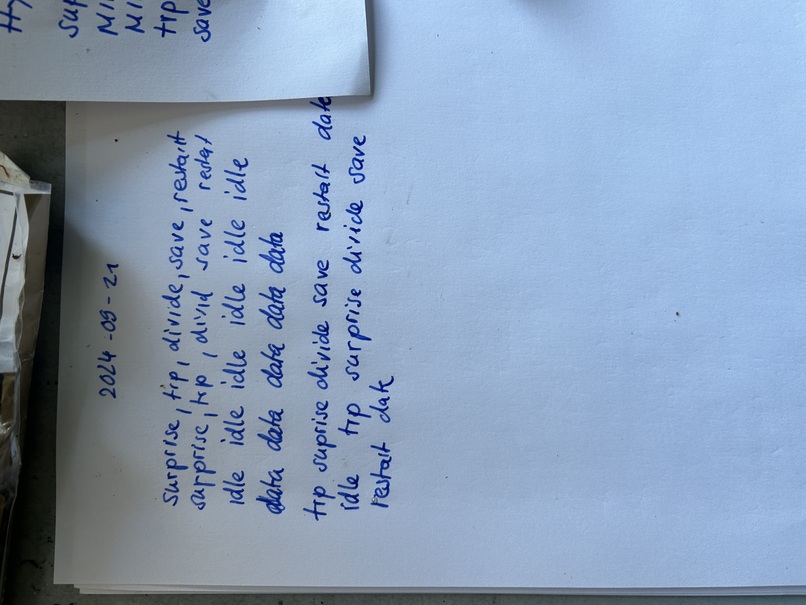 2024-09-21
surprise, trip, divide, save, restart
surprise, trip, divid save restart
idle idle idle idle idle idle
data data data data data
trip suprise divide save restart date
idle trip surprise divide save
restart date
save